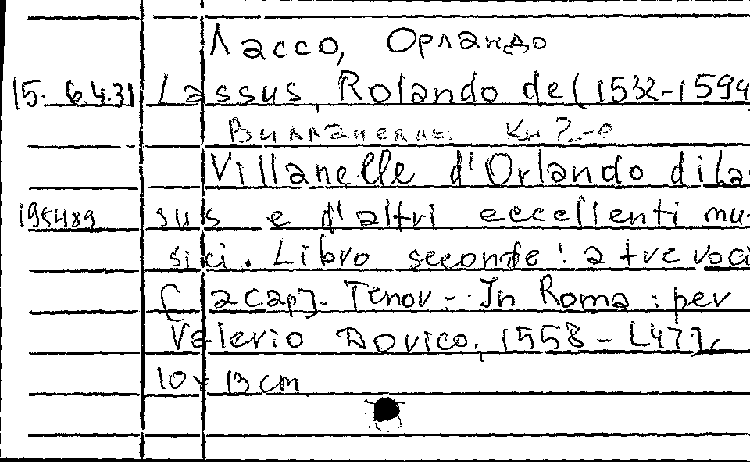 Лассо, Орландо
15. 6431 Lassus, Rolando de (1532-1594
Вилланеллы. Кн 2-о
Villanelle d'Orlando di Las-
195489 sus e d'altri eccellenti mu-
sici. Libro seconde! a tre voci
[a cap]. Tenor - In Roma: per
Valerio Dorico, 1558 - [47].
10 x 13 cm